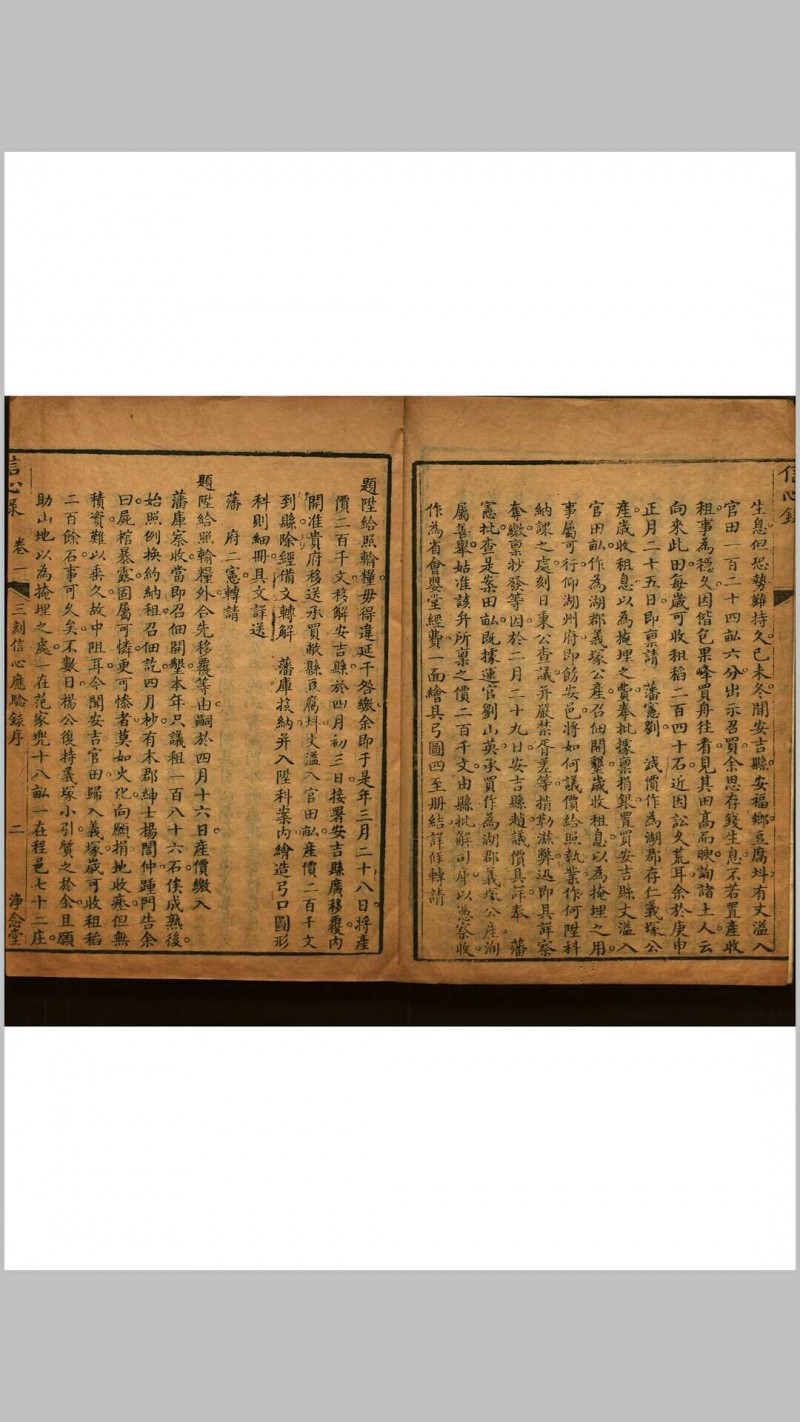 信心錄
生息但恐勢難持久已未冬聞安吉縣安福鄉豆腐㘰有丈溢入
官田一百二十四畝六分出示召買余思存錢生息不若置產收
租事為穩久因偕包果峰買舟往看見其田高而腴詢諸土人云
向來此田每歲可收租稻二百四十石近因訟久荒耳余於庚申
正月二十五日即稟請 藩憲劉 減價作為湖郡存仁義塚公
產歲收租息以為掩埋之費奉批據稟捐銀置買安吉縣丈溢入
官田畝作為湖郡義塚公產召佃開墾歲收租息以為掩埋之用
事屬可行仰湖州府即飭安邑將如何議價給照執業作何陞科
納課之處刻日秉公查議并嚴禁胥差等掯勒滋弊迅即具詳察
奪繳稟抄發等因於二月二十九日安吉縣趙議價具詳奉 藩
憲批查是案田畝既據運官劉山英承買作為湖郡義塚公產洵
屬善舉姑准該升所稟之價二百千文由縣批解司庫以憑察收
作為省會嬰堂經費一面繪具弓圖四至册結詳候轉請
題陞給照輸糧毋得違延干咎繳余即于是年三月二十八日將產
價二百千文移解安吉縣於四月初三日接署安吉縣廣移覆內
開准貴府移送承買敝縣豆腐㘰丈溢入官田畝產價二百千文
到縣除經備文轉解 藩庫按納并入陞科案內繪造弓口圖形
科則細冊具文詳送
藩 府二憲轉請
題陞給照輸糧外合先移覆等由嗣於四月十六日產價繳入
藩庫察收當即召佃開墾本年只議租一百八十六石俟成熟後
始照例換約納租召佃訖四月杪有本郡紳士楊閣仲踵門告余
曰屍棺暴露固屬可憐更可慘者莫如火化向願捐地收瘞但無
積資難以垂久故中阻耳今聞安吉官田歸入義塚歲可收租稻
二百餘石事可久矣不數日楊公復持義塚小引質之於余且願
助山地以為掩埋之處一在范家兜十八畝一在程邑七十二庄
信心录 卷一 三刻信心應驗錄序 二 淨念堂